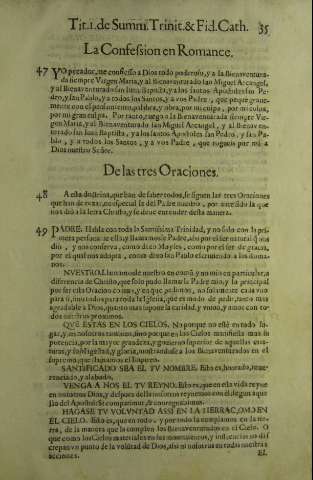 Tit.1. de Summ. Trinit. & Fid. Cath. 35
La Confession en Romance.
47 YO pecador, me confiesso a Dios todo poderoso, y a la Bienaventura-
da siempre Virgen Maria, y al Bienaventurado san Miguel Arcangel,
y al Bienaventurado san Iuan Baptista, y a los santos Apostoles san Pe-
dro, y san Pablo, y a todos los Santos, y a vos Padre, que peque grave-
mente con el pensamiento, palabra, y obra, por mi culpa, por mi culpa,
por mi gran culpa. Por tanto, ruego a la Bienaventurada siempre Vir-
gen Maria, y al Bienaventurado san Miguel Arcangel, y al Bienaven-
turado san Iuan Baptista, y a los santos Apostoles san Pedro, y san Pa-
blo, y a todos los Santos, y a vos Padre, que rogueis por mi a
Dios nuestro Señor.
De las tres Oraciones.
48 A esta doctrina, que han de saber todos, se siguen las tres Oraciones
que han de rezar, en especial la del Padre nuestro, por ser la que
nos dió a la letra Christo, y se deve entender desta manera.
49 PADRE. Habla con toda la Santissima Trinidad, y no solo con la pri-
mera persona: se ella, y llamamosle Padre, assi por el ser natural q nos
dio, y nos conserva, como dize Moyses, como por el ser de gracia,
por el qual nos adopta, como dixo san Pablo escriviendo a los Roma-
nos.
NVESTRO. Llamamosle nuestro en comũ, y no mio en particular, a
diferencia de Christo, que solo pudo llamarle Padre mio, y la principal
por ser esta Oracion comun, y en que pedimos, no solamente cada vno
para si, sino todos para toda la Iglesia, que es modo de pedir, tanto mas
agradable a Dios, quanto mas supone la caridad, y vnion, y amor con to-
dos nuestros proximos.
QVE ESTAS EN LOS CIELOS. No porque no estè en todo lu-
gar, y en nosotros tambien, sino porque en los Cielos manifiesta mas su
potencia, por la mayor grandeza, y govierno superior de aquellas cria-
turas, y subsigestad, y gloria, mostrandose a los Bienaventurados en el
supremo, que llamamos el Impireo.
SANTIFICADO SEA EL TV NOMBRE. Esto es, honrado, reve-
renciado, y alabado.
VENGA A NOS EL TV REYNO. Esto es, que en esta vida reyne
en nosotros Dios, y despues della nosotros reynemos con el, segun aque-
llo del Apostol: Si compatimur, & conregnabimus.
HAGASE TV VOLVNTAD ASSI EN LA TIERRA, COMO EN
EL CIELO. Esto es, que en todo, y por todo la cumplamos en la tier-
ra, de la manera que la cumplen los Bienaventurados en el Cielo. O
que como los Cielos materiales en sus movimientos, y influencias no dis-
crepan vn punto de la volũtad de Dios, assi ni nosotros en todas nuestras
acciones.
El